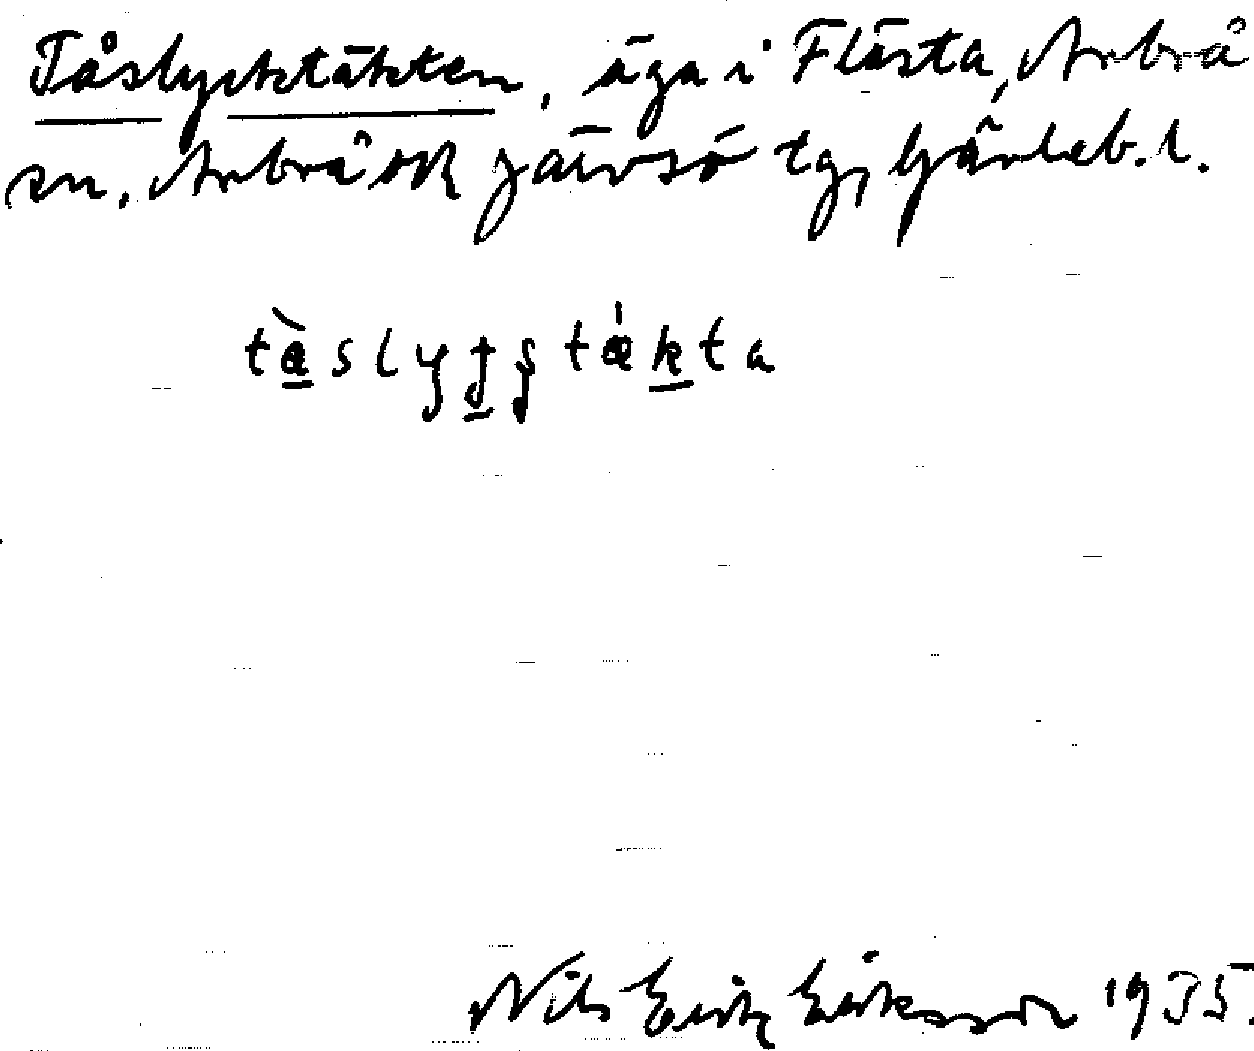 Tåslycktäkten, äga i Flästa, Arbrå
sn, Arbrå och Järvsö tg, Gävleb. l.
Nils Erik Eriksson 1935.